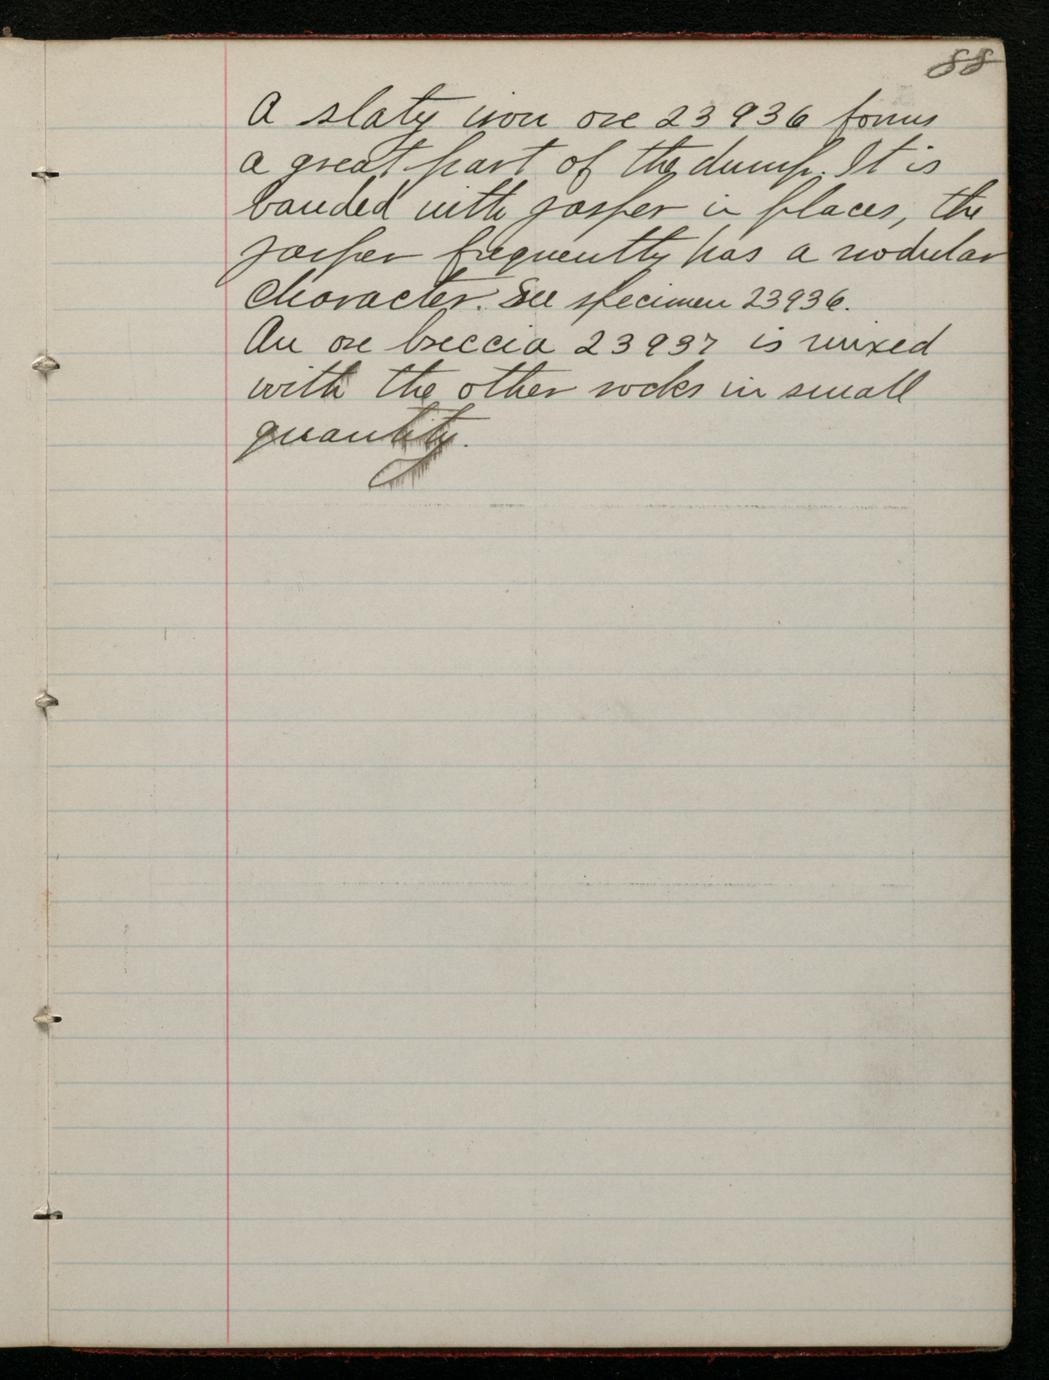 88
A slaty iron ore 23936 forms
a great part of the dump. It is
banded with jasper in places, the
jasper frequently has a nodular
character. See specimen 23936.
An ore breccia 23937 is mixed
with the other rocks in small
quantity.